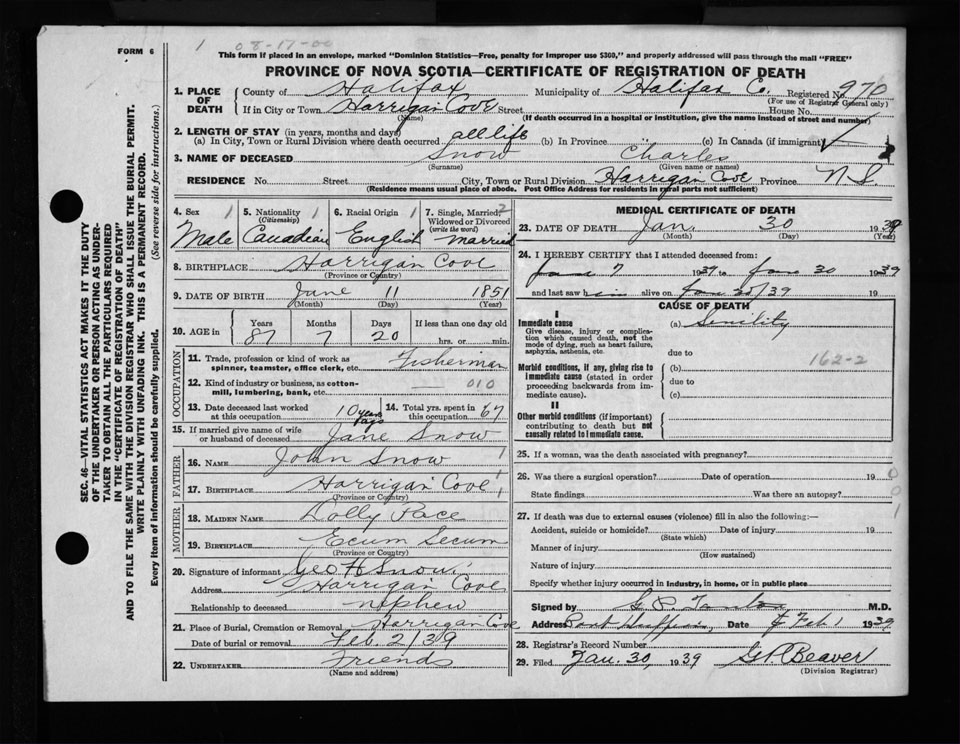 1 08-17-00
FORM 6
This form if placed in an envelope, marked "Dominion Statistics—Free, penalty for improper use $300," and properly addressed will pass through the mail "FREE"
PROVINCE OF NOVA SCOTIA—CERTIFICATE OF REGISTRATION OF DEATH
1. PLACE OF DEATH
County of Halifax Municipality of Halifax Co. Registered No. 976
(For use of Registrar General only)
If in City or Town Harrigan Cove Street House No.
(Name) (If death occurred in a hospital or institution, give the name instead of street and number)
2. LENGTH OF STAY (in years, months and days)
(a) In City, Town or Rural Division where death occurred all life (b) In Province (c) In Canada (if immigrant)
3. NAME OF DECEASED Snow Charles
(Surname) (Given name or names)
RESIDENCE No. Street City, Town or Rural Division Harrigan Cove Province N.S.
(Residence means usual place of abode. Post Office Address for residents in rural parts not sufficient)
4. Sex 1 Male
5. Nationality 1 (Citizenship) Canadian
6. Racial Origin 1 English
7. Single, Married, 2 Widowed or Divorced (write the word) married
8. BIRTHPLACE Harrigan Cove
(Province or Country)
9. DATE OF BIRTH June 11 1851
(Month) (Day) (Year)
10. AGE in Years Months Days If less than one day old
87 7 20 hrs. or min.
OCCUPATION
11. Trade, profession or kind of work as spinner, teamster, office clerk, etc. Fisherman
12. Kind of industry or business, as cotton-mill, lumbering, bank, etc. 010
13. Date deceased last worked at this occupation 10 years ago
14. Total yrs. spent in this occupation 67
15. If married give name of wife or husband of deceased Jane Snow
FATHER
16. NAME John Snow 1
17. BIRTHPLACE Harrigan Cove 1
(Province or Country)
MOTHER
18. MAIDEN NAME Dolly Pace
19. BIRTHPLACE Ecum Secum
(Province or Country)
20. Signature of informant Geo H Snow
Address Harrigan Cove
Relationship to deceased nephew
21. Place of Burial, Cremation or Removal Harrigan Cove
Date of burial or removal Feb. 2/39
22. UNDERTAKER Friends
(Name and address)
MEDICAL CERTIFICATE OF DEATH
23. DATE OF DEATH Jan. 30 1939
(Month) (Day) (Year)
24. I HEREBY CERTIFY that I attended deceased from:
Jan 7 1939 to Jan 30 1939
and last saw him alive on Jan 30/39 19
CAUSE OF DEATH
I
Immediate cause (a) Senility
Give disease, injury or complication which caused death, not the mode of dying, such as heart failure, asphyxia, asthenia, etc.
due to
162-2
Morbid conditions, if any, giving rise to immediate cause (stated in order proceeding backwards from immediate cause).
(b)
due to
(c)
II
Other morbid conditions (if important) contributing to death but not causally related to immediate cause.
25. If a woman, was the death associated with pregnancy?
26. Was there a surgical operation? Date of operation 19 0
State findings Was there an autopsy? 0
27. If death was due to external causes (violence) fill in also the following:— 1
Accident, suicide or homicide? Date of injury 19
(State which)
Manner of injury
(How sustained)
Nature of injury
Specify whether injury occurred in industry, in home, or in public place
Signed by M.D.
Address Port Date Feb 1 1939
28. Registrar's Record Number
29. Filed Jan. 30, 1939 Beaver
(Division Registrar)
SEC. 46—VITAL STATISTICS ACT MAKES IT THE DUTY
OF THE UNDERTAKER OR PERSON ACTING AS UNDER-
TAKER TO OBTAIN ALL THE PARTICULARS REQUIRED
IN THE "CERTIFICATE OF REGISTRATION OF DEATH"
AND TO FILE THE SAME WITH THE DIVISION REGISTRAR WHO SHALL ISSUE THE BURIAL PERMIT.
WRITE PLAINLY WITH UNFADING INK. THIS IS A PERMANENT RECORD.
Every item of information should be carefully supplied. (See reverse side for instructions.)